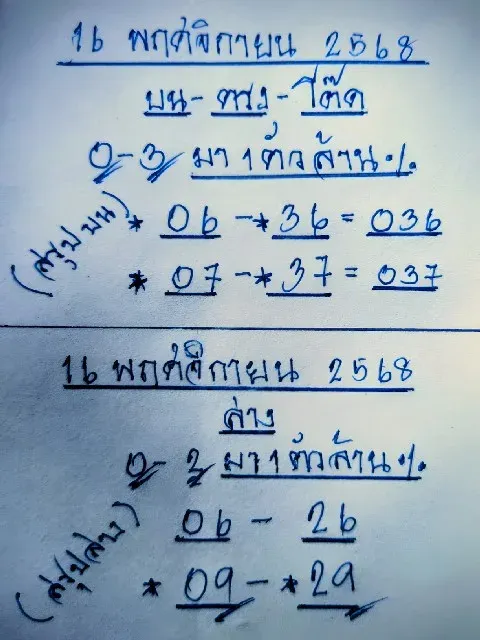 16 พฤศจิกายน 2568
บน - ตรง - โต๊ด
0-3 มา 1 ตัวล้าน %
(สรุปบน)
* 06 - * 36 = 036
* 07 - * 37 = 037
16 พฤศจิกายน 2568
ล่าง
0-2 มา 1 ตัวล้าน %
(สรุปล่าง)
06 - 26
* 09 - * 29